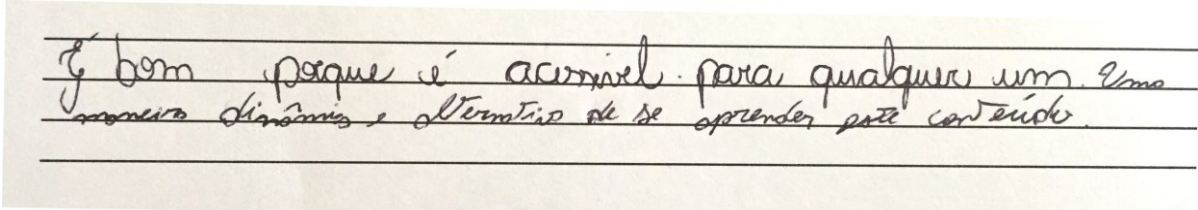 É bom porque é acessível para qualquer um. Uma
maneira dinâmica e alternativa de se aprender este conteúdo.